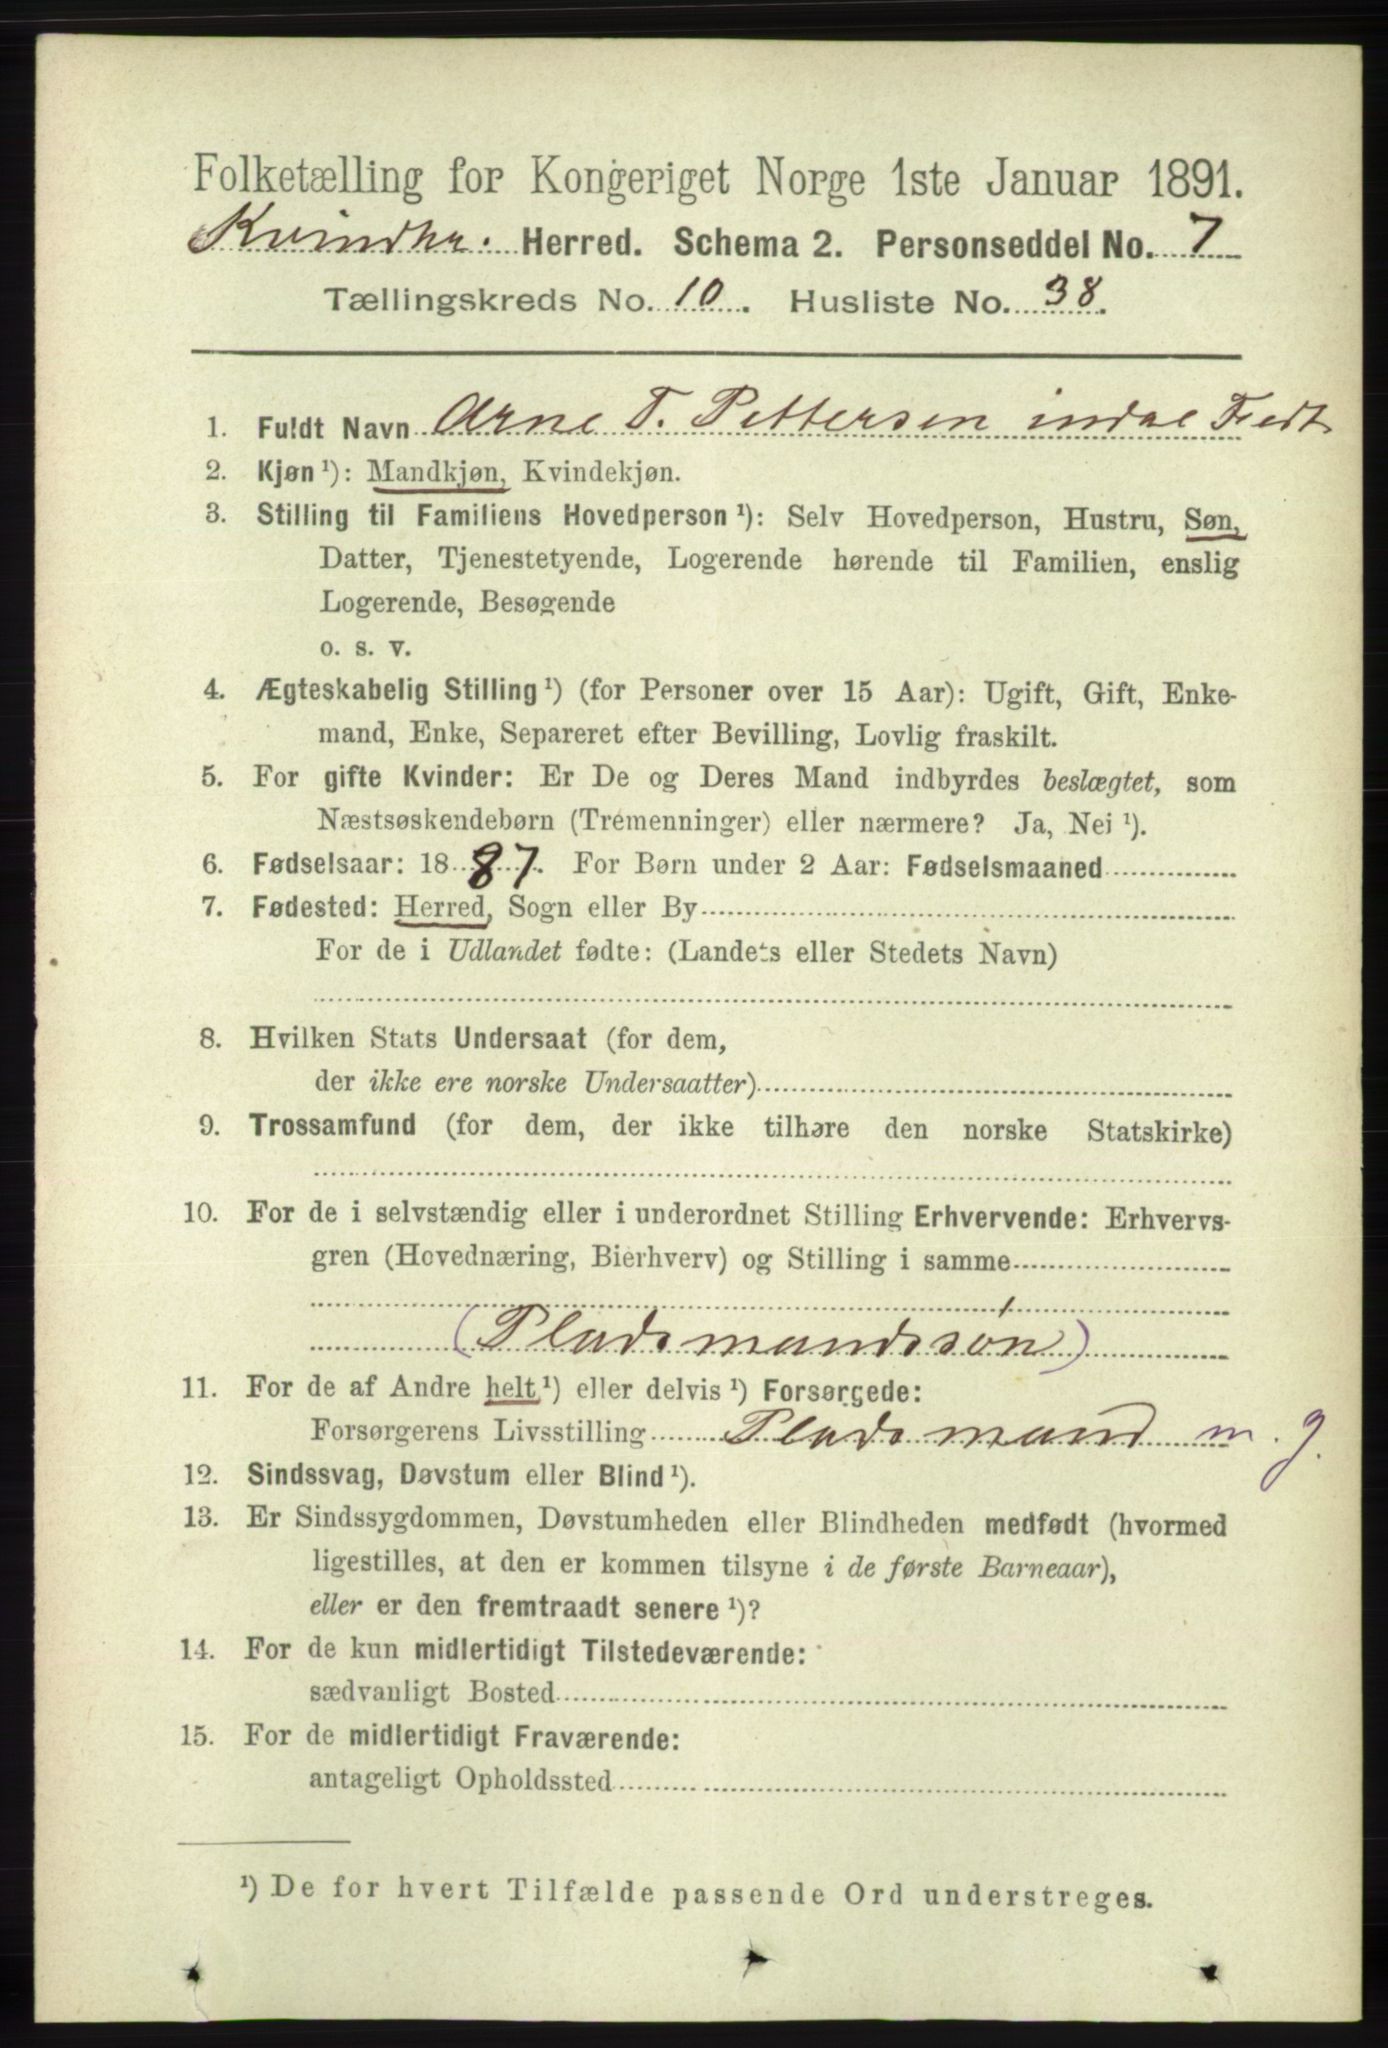 Folketælling for Kongeriget Norge 1ste Januar 1891.
Kvindhr. Herred. Schema 2. Personseddel No. 7
Tællingskreds No. 10. Husliste No. 38.
1. Fuldt Navn Arne T. Pettersen indre Fedt
2. Kjøn ¹): Mandkjøn, Kvindekjøn.
3. Stilling til Familiens Hovedperson ¹): Selv Hovedperson, Hustru, Søn,
Datter, Tjenestetyende, Logerende hørende til Familien, enslig
Logerende, Besøgende
o. s. v.
4. Ægteskabelig Stilling ¹) (for Personer over 15 Aar): Ugift, Gift, Enke-
mand, Enke, Separeret efter Bevilling, Lovlig fraskilt.
5. For gifte Kvinder: Er De og Deres Mand indbyrdes beslægtet, som
Næstsøskendebørn (Tremenninger) eller nærmere? Ja, Nei ¹).
6. Fødselsaar: 1887. For Børn under 2 Aar: Fødselsmaaned
7. Fødested: Herred, Sogn eller By
For de i Udlandet fødte: (Landets eller Stedets Navn)
8. Hvilken Stats Undersaat (for dem,
der ikke ere norske Undersaatter)
9. Trossamfund (for dem, der ikke tilhøre den norske Statskirke)
10. For de i selvstændig eller i underordnet Stilling Erhvervende: Erhvervs-
gren (Hovednæring, Bierhverv) og Stilling i samme
(Pladsmandssøn)
11. For de af Andre helt ¹) eller delvis ¹) Forsørgede:
Forsørgerens Livsstilling Pladsmand m. j.
12. Sindssvag, Døvstum eller Blind ¹).
13. Er Sindssygdommen, Døvstumheden eller Blindheden medfødt (hvormed
ligestilles, at den er kommen tilsyne i de første Barneaar),
eller er den fremtraadt senere ¹)?
14. For de kun midlertidigt Tilstedeværende:
sædvanligt Bosted
15. For de midlertidigt Fraværende:
antageligt Opholdssted
¹) De for hvert Tilfælde passende Ord understreges.